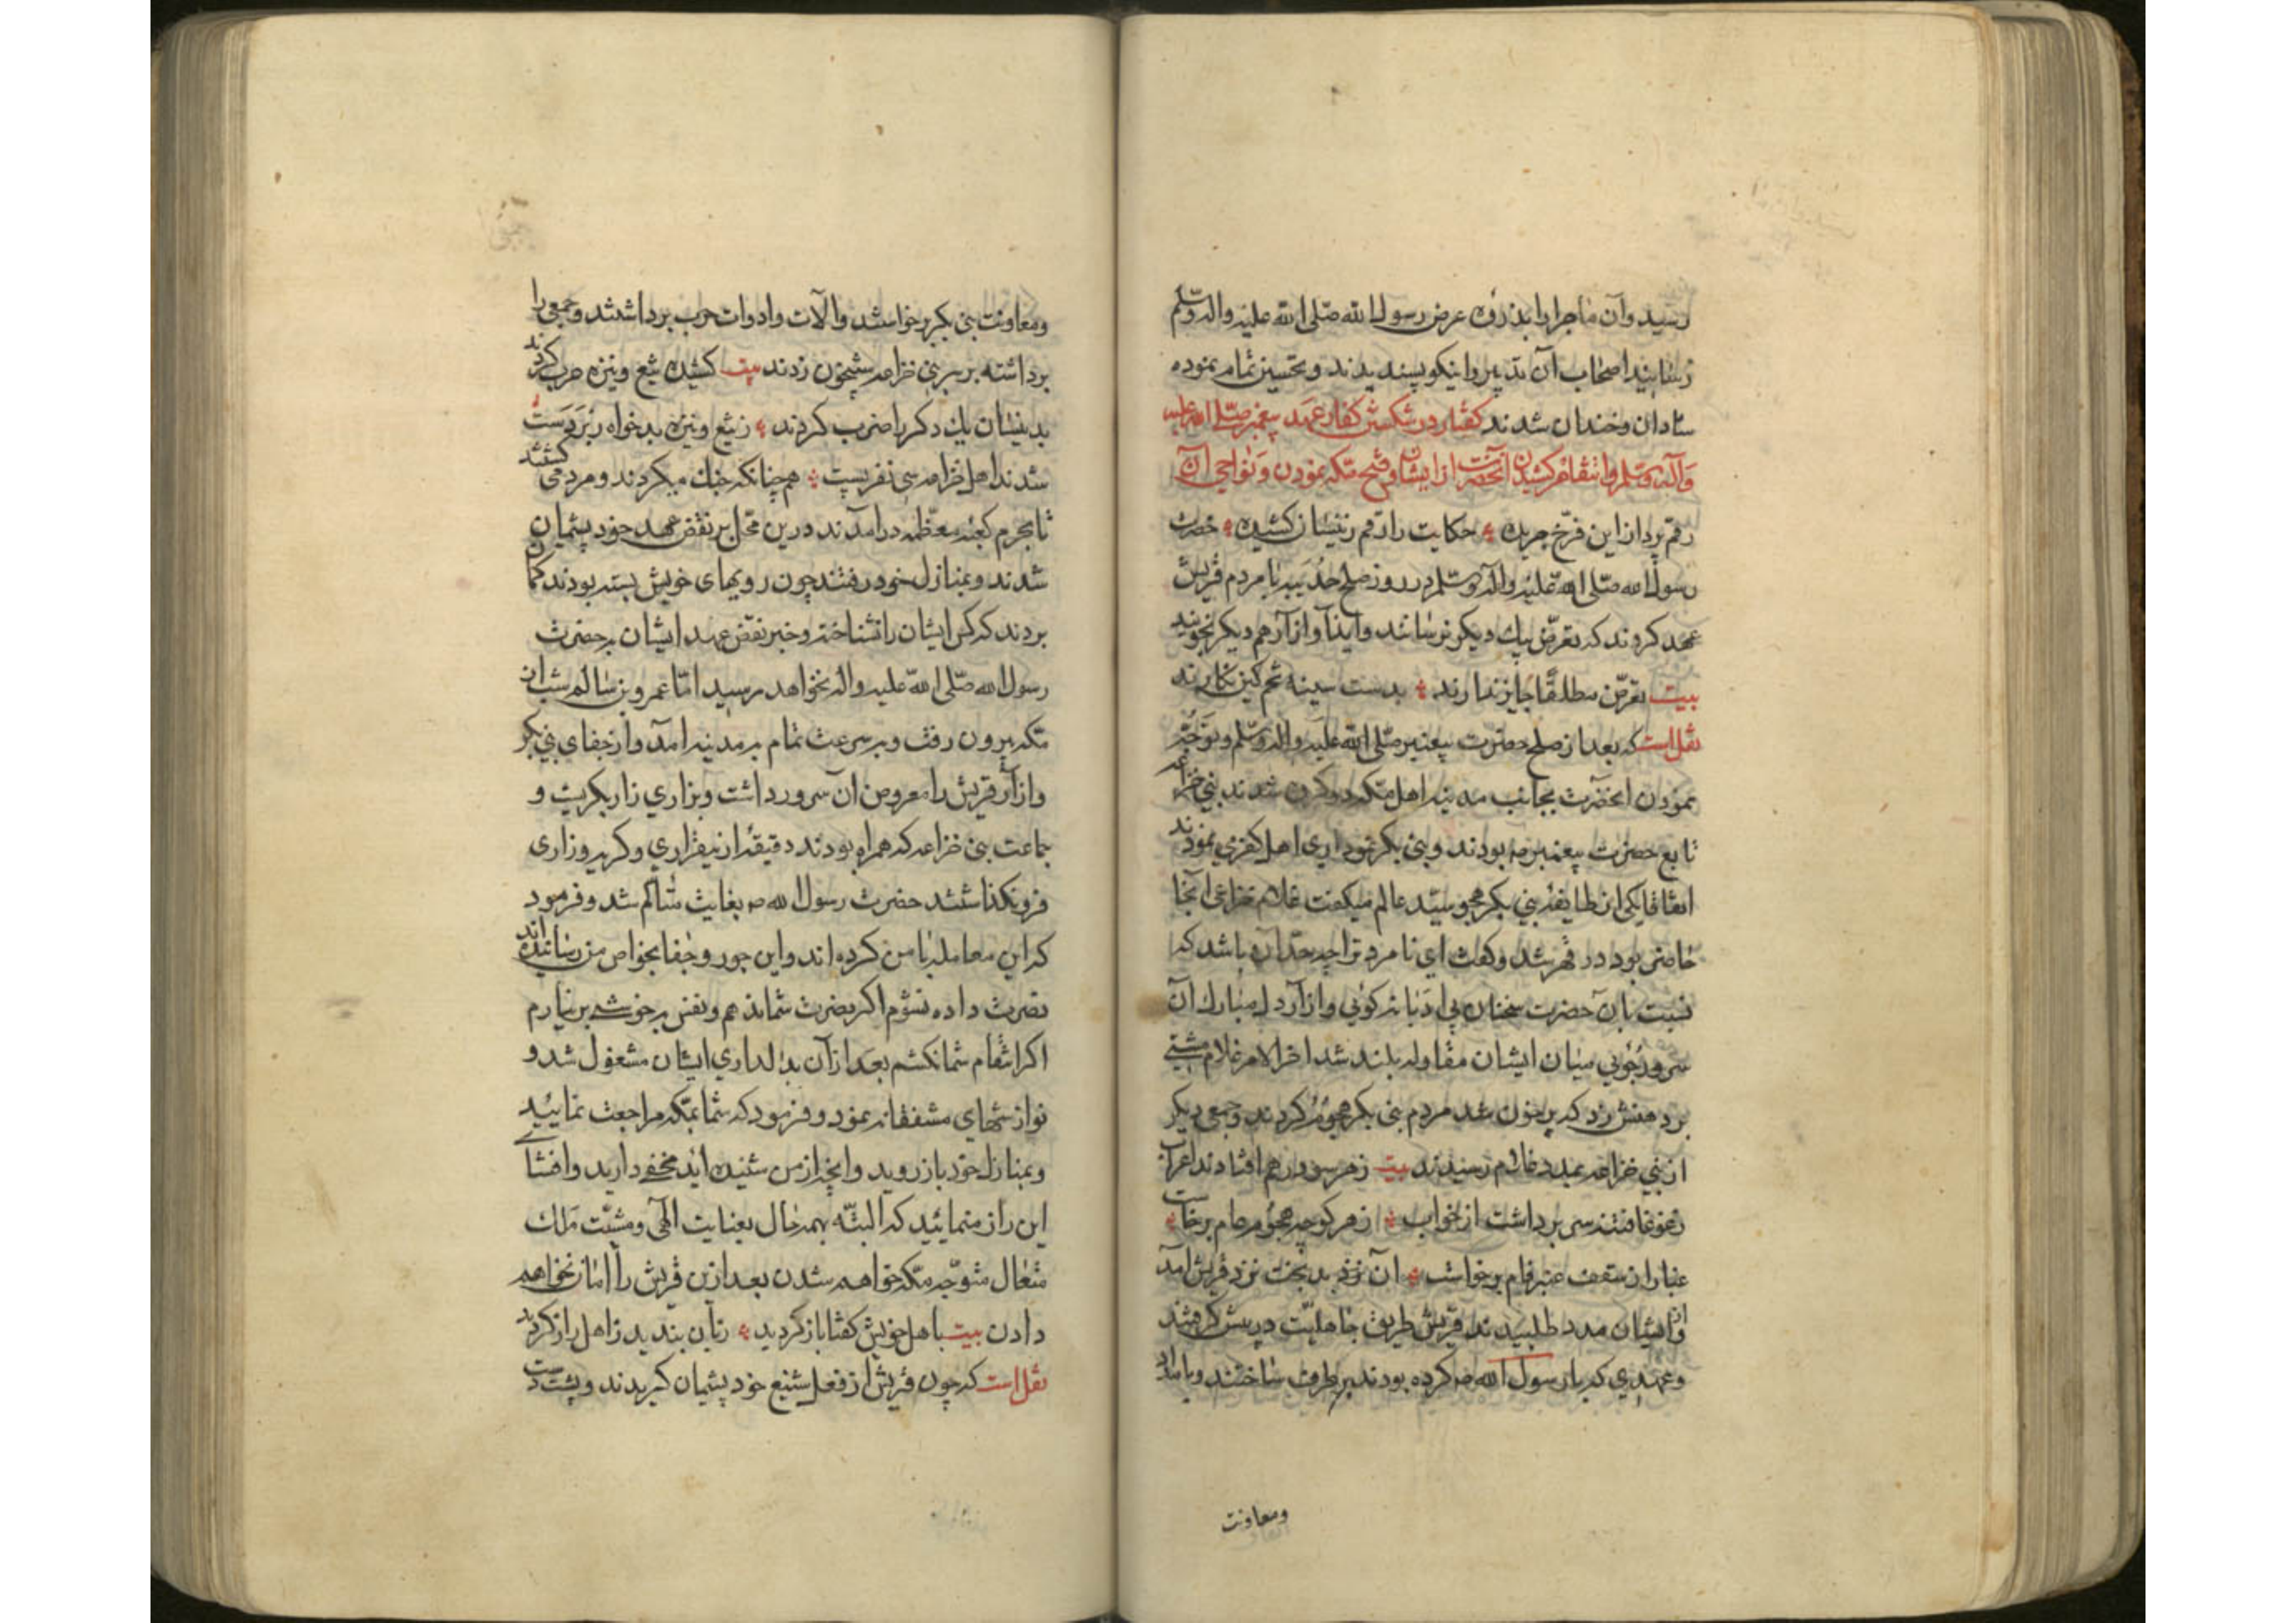 رسید و آن ماجرا را بذروهٔ عرض رسول الله صلّی الله علیه واله وسلّم
رسانید اصحاب آن تدبیر را نیکو پسندیدند و تحسین تمام نموده
شادان و خندان شدند کفتار در شکستن کفار عهد پیغمبر صلّی الله علیه
وآله وسلم وانتقام کشیدن آنحضرت از ایشان وفتح مکه نمودن ونواحی آن
رقم پرداز این فرّخ جریده حکایت را رقم زینسان کشیده حضرت
رسول الله صلّی الله علیه واله وسلّم در روز صلح حدیبیه با مردم قریش
عهد کردند که تعرّض بیك دیکر نرسانند وایذا وازار هم دیکر نجویند
بیت تعرّض مطلقًا جایز ندارند بدست سینه تخم کین نکارند
نقل است که بعد از صلح حضرت پیغمبر صلّی الله علیه واله وسلّم وتوجّه
نمودن انحضرت بجانب مدینه اهل مکه دو کروه شدند بنی خزاعه
تابع حضرت پیغمبر صه بودند و بنی بکر هواداری اهل کفر می نمودند
اتفاقا یکی از طایفهٔ بنی بکر هجو سیّد عالم میکفت غلام خزاعی آنجا
حاضر بود در قهر شد وکفت ای نامرد ترا چه حدّ آن باشد که
نسبت بآن حضرت سخنان بی ادبانه کوئی وازار دل مبارك آن
سرور جوئی میان ایشان مقاوله بلند شد اخر الامر غلام مشتی
بر دهنش زد که پر خون شد مردم بنی بکر هجوم کردند وجمعی دیکر
از بنی خزاعه بمدد غلام رسیدند بیت زهر سو درهم افتادند اعراب
زغوغا فتنه سر برداشت از خواب زهر کوچه هجوم عام برخاست
غبار از سقف عنبر فام برخاست آن نزد بدبخت نزد قریش آمد
و از ایشان مدد طلبیدند قریش طریق جاهلیّت در پیش کرفتند
وعهدی که با رسول الله صه کرده بودند بر طرف ساختند وبامداد
ومعاونت
ومعاونت بنی بکر برخواستند والآت وادوات حرب برداشتند وجمعی را
برداشته بر سر بنی خزاعه شبیخون زدند بیت کشیده تیغ ونیزه حرب کردند
بدینسان یك دکر را ضرب کردند زتیغ ونیزه بدخواه زبردست
شدند اهل خزاعه سی نفر پست هم چنانکه جنك میکردند ومردمی کشتند
تا بحرم کعبه معظّمه درامدند درین محّل بر نقض عهد خود پشیمان
شدند وبمنازل خود رفتند چون رویهای خویش بسته بودند کمان
بردند که کس ایشان را نشناخته وخبر نقض عهد ایشان بحضرت
رسول الله صلّی الله علیه واله نخواهد رسید امّا عمرو بن سالم شب از
مکه بیرون رفت وبسرعت تمام بمدینه امد وازجفای بنی بکر
وازار قریش را معروض آن سرور داشت وبزاری زار بکریست و
جماعت بنی خزاعه که همراه بودند دقیقهٔ از بیقراری وکریه وزاری
فرو نکذاشتند حضرت رسول الله صه بغایت متالم شد وفرمود
که این معامله با من کرده اند واین جور وجفا بخواص من رسانیده اند
نصرت داده نشوم اکر نصرت شما ندهم ونفس بخوشی برنیارم
اکر انتقام شما نکشم بعد از آن بدلداری ایشان مشغول شد و
نوازشهای مشفقانه نمود وفرمود که شما بمکه مراجعت نمایید
وبمنازل خود باز روید وانچه از من شنیده اید مخفی دارید وافشای
این راز منمائید که البتّه بهمه حال بعنایت الهی ومشیّت ملك
متعال متوجّه مکه خواهم شدن بعد ازین قریش را امان نخواهم
دادن بیت باهل خویش کفتا باز کردید زبان بندید زاهل راز کردید
نقل است که چون قریش از فعل شنیع خود پشیمان کردیدند وپشت دست